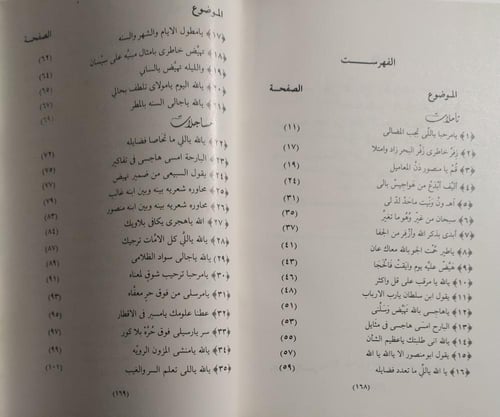 الفهرست
الموضوع الصفحة
تأملات
﴿١﴾ يامرحبا ياللي نجب المضالى (١١)
﴿٢﴾ زفر خاطرى زفر البحر زاد وامتلا (١٧)
﴿٣﴾ قم يا منصور دن المعاميل (١٩)
﴿٤﴾ آليف أبدع من هواجيس بالى (٢٤)
﴿٥﴾ أهـ ون ونيت ماحد لد لى (٣١)
﴿٦﴾ سبحان من غير وهوما تغير (٣٥)
﴿٧﴾ أبدى بذكر الله وأزفر من الجفا (٣٧)
﴿٨﴾ ياطير تحت الجو بالله معاك عان (٤١)
﴿٩﴾ هيض عليه يوم وايقت فالحجا (٤٣)
﴿١٠﴾ يالله يا مرقب على قل واكثر (٤٦)
﴿١١﴾ يقول ابن سلطان يارب الارباب (٤٨)
﴿١٢﴾ ياهاجسى بالله تهيض وسلنى (٥١)
﴿١٣﴾ البارح امسى هاجسى فى مثايل (٥٣)
﴿١٤﴾ يالله انى طلبتك ياعظيم الشان (٥٥)
﴿١٥﴾ يقول ابومنصور الا يالله يا الله (٥٧)
﴿١٦﴾ يا الله ياللي ما تعدد فضايله (٥٩)
(١٦٨)
الموضوع
الصفحة
﴿١٧﴾ يامطول الايام والشهر والسنه
﴿١٨﴾ تهيض خاطرى بامثال مبنيه على سيسان (٦٢)
﴿١٩﴾ والليله تهيض بالسانى (٦٤)
﴿٢٠﴾ يالله اليوم يامولاى تلطف بحالى (٦٥)
﴿٢١﴾ يالله ياجالى السنه بالمطر (٦٧)
مساجلات (٦٩)
﴿٢٢﴾ يالله ياللي ما تحاصا فضايله
﴿٢٣﴾ البارحة امسى هاجسى فى تفاكير (٧٢)
﴿٢٤﴾ يقول السبيعى من ضمير تهيض (٧٤)
﴿٢٥﴾ محاوره شعريه بينه وبين ابنه غالب (٧٦)
﴿٢٦﴾ محاوره شعريه بينه وبين ابنه منصور (٧٩)
﴿٢٧﴾ الله ياهجرى يكافى بلاويك (٨٣)
﴿٢٨﴾ يالله ياللي كل الامات ترجيك (٨٧)
﴿٢٩﴾ يالله ياجالى سواد الظلامى (٨٩)
﴿٣٠﴾ يامرحبا ترحيب شوق لمعناه (٩١)
﴿٣١﴾ يامرسلى من فوق حر معفاه (٩٣)
﴿٣٢﴾ عطنا علومك يامسير فى الاقطار (٩٥)
﴿٣٣﴾ سر يارسيلى فوق حرة بلا كور (٩٧)
﴿٣٤﴾ يالله يامنشى المزون الرويه (٩٩)
﴿٣٥﴾ يالله ياللي تعلم السر والغيب (١٠٦)
(١٦٩)